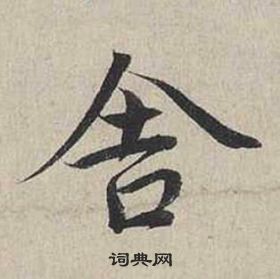 舍
词典网